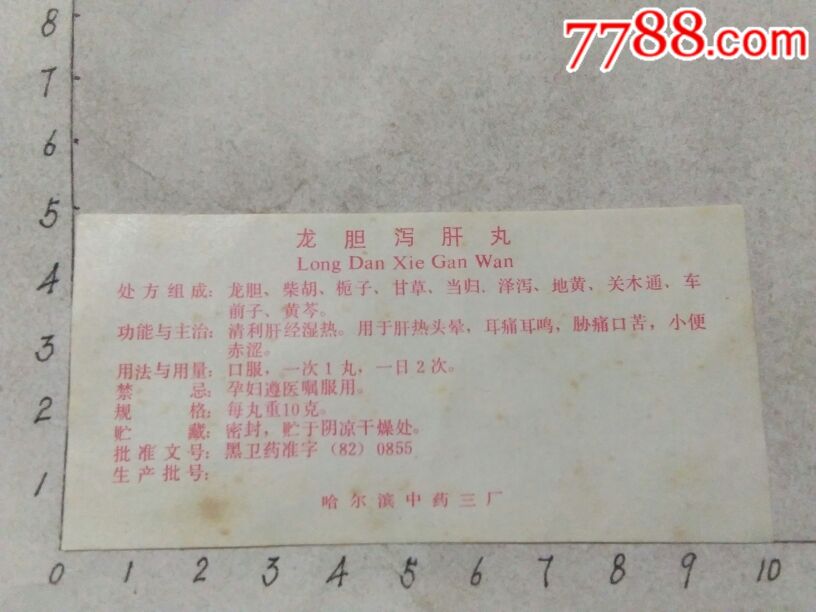 7788.com
8
7
6
5
4
3
2
1
龙胆泻肝丸
Long Dan Xie Gan Wan
处方组成：龙胆、柴胡、栀子、甘草、当归．泽泻、地黄、关木通、车
前子、黄芩。
功能与主治：清利肝经湿热。用于肝热头晕，耳痛耳鸣，胁痛口苦，小便
赤涩。
用法与用量：口服，一次1丸，一日2次。
禁忌：孕妇遵医嘱服用。
规格：每丸重10克。
贮藏：密封，贮于阴凉干燥处。
批准文号：黑卫药准字（82）0855
生产批号：
哈尔滨中药三厂
0 1 2 3 4 5 6 7 8 9 10